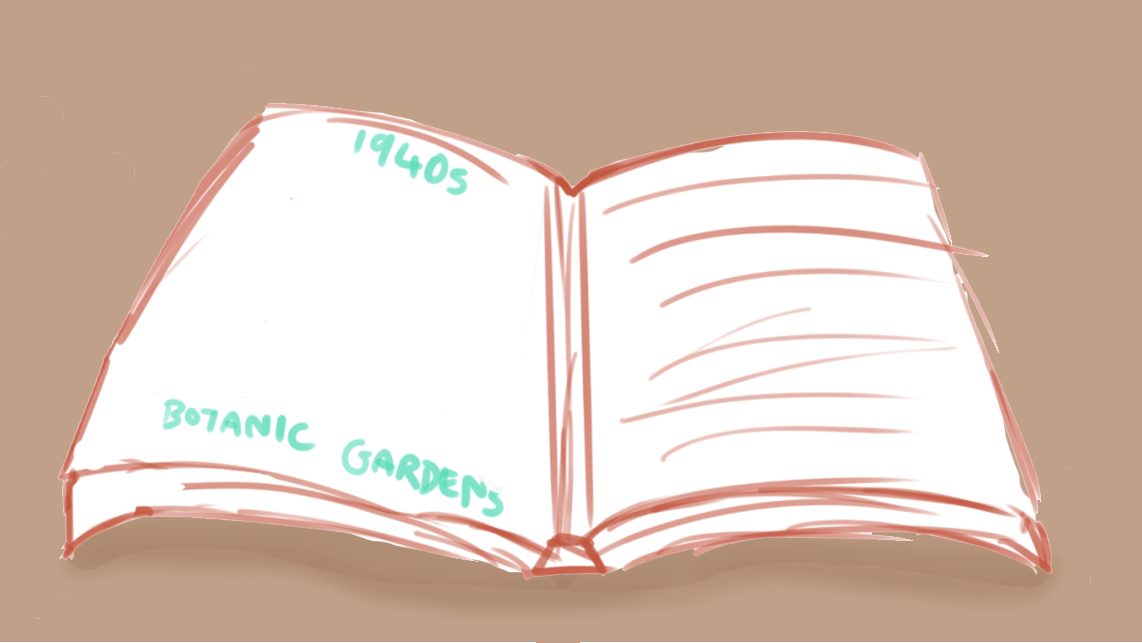 1940s
BOTANIC GARDENS